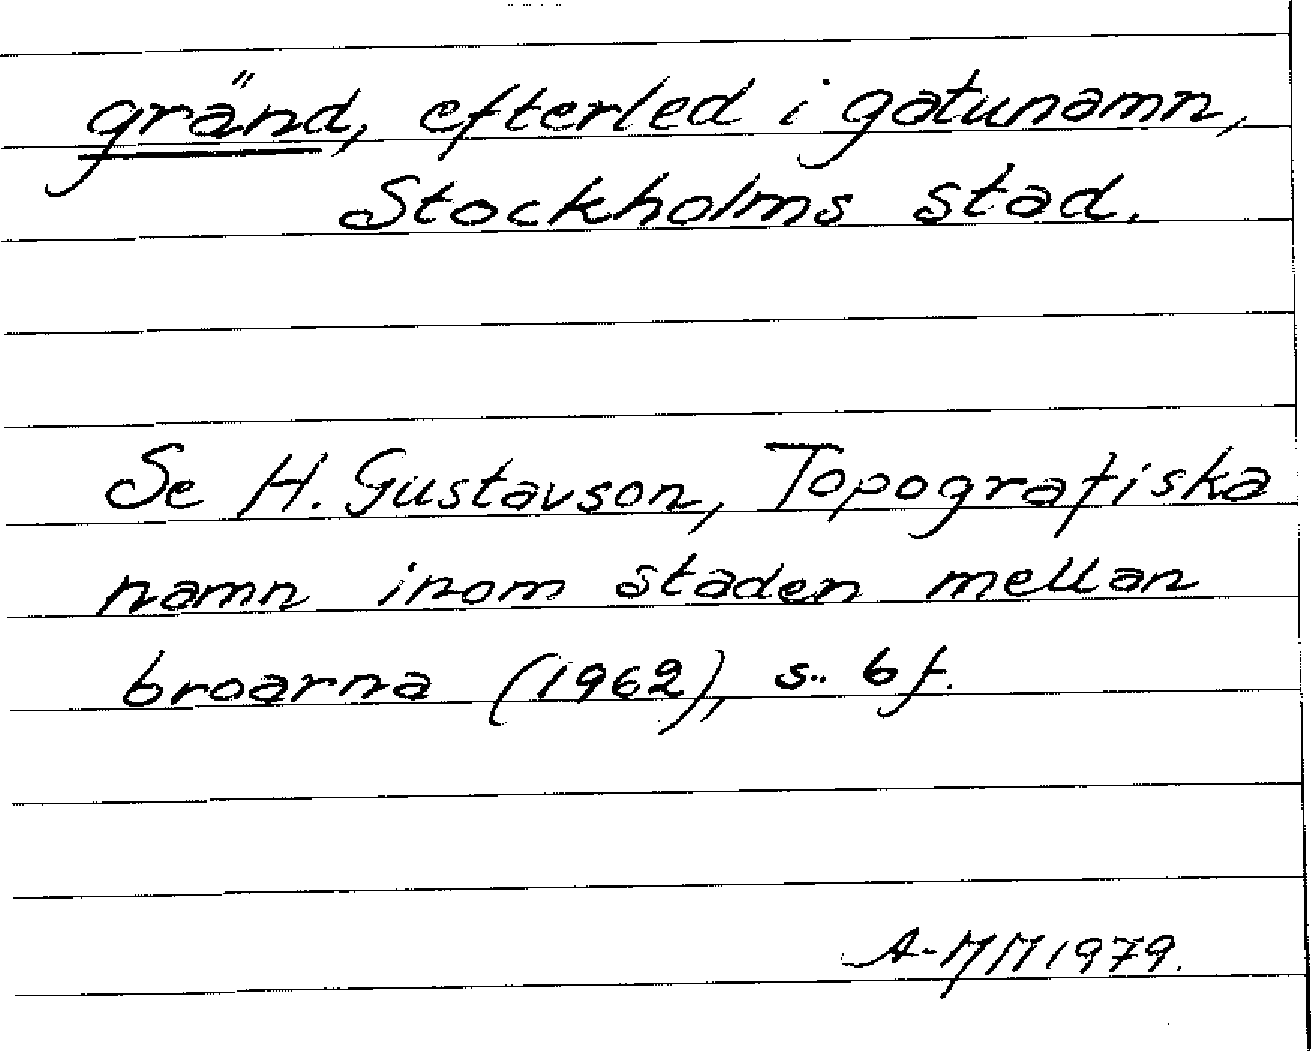 gränd, efterled i gatunamn,
Stockholms stad.
Se H. Gustavson, Topografiska
namn inom staden mellan
broarna (1962), s. 6 f.
A-MM 1979.